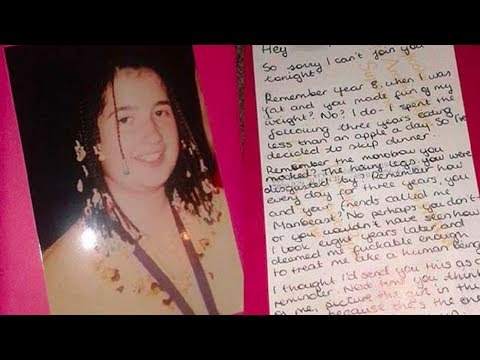 Hey
So sorry I can't join you
tonight
Remember year 8, when I was
fat and you made fun of my
weight? No? I do - I spent the
following three years eating
less than an apple a day. So I've
decided to skip dinner
Remember the monobrow you
mocked? The hairy legs you were
disgusted by? Remember how
every day for three years, you
and your friends called me
Manbeast? No perhaps you don't
or you wouldn't have seen how
I look eight years later and
deemed me fuckable enough
to treat me like a human being
I thought I'd send you this as a
reminder. Next time you think
of me, picture this girl in this
because she's the one